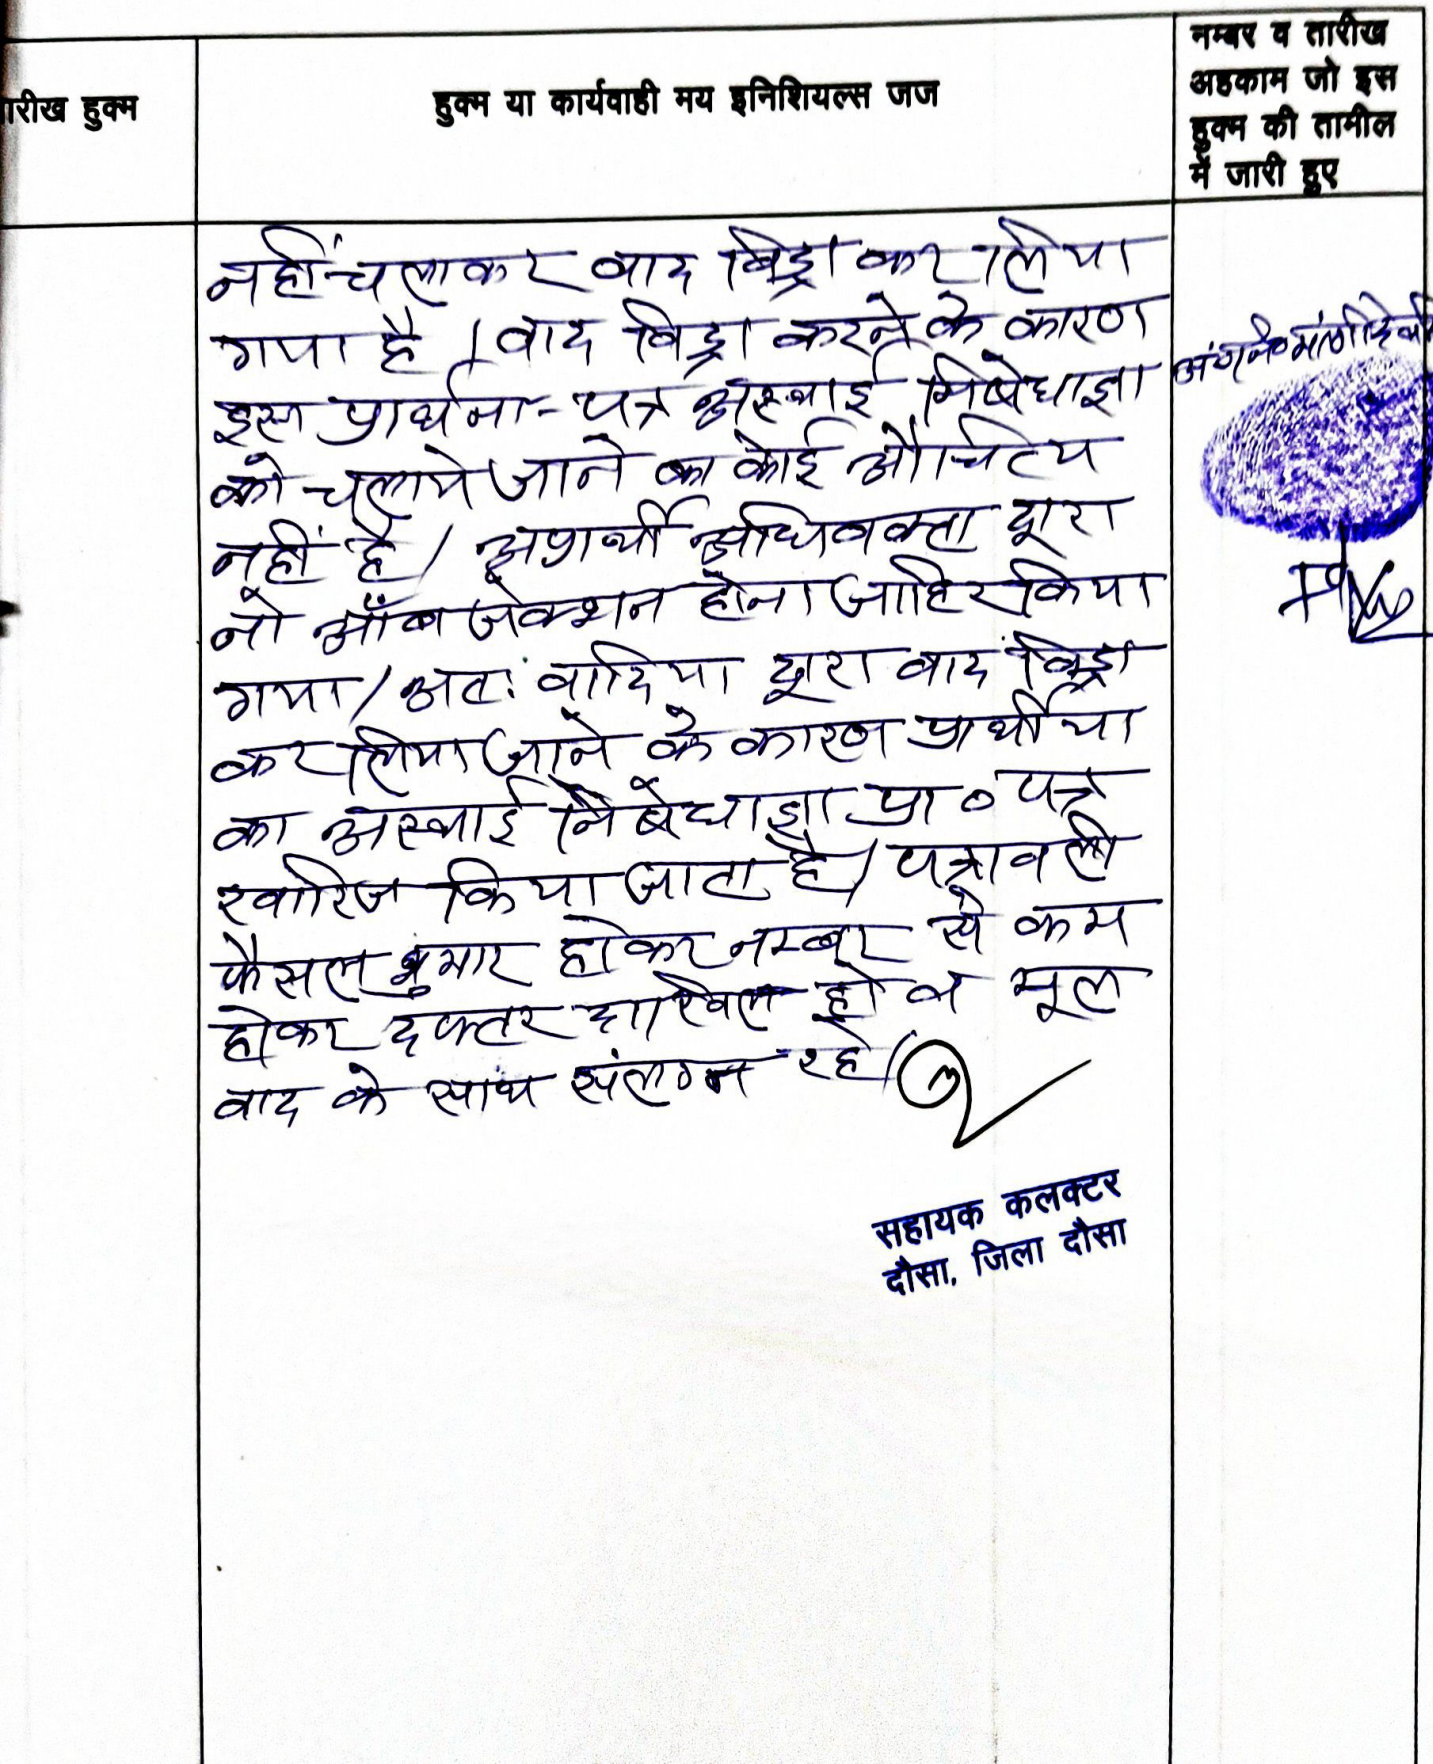 तारीख हुक्म
हुक्म या कार्यवाही मय इनिशियल्स जज
नम्बर व तारीख
अहकाम जो इस
हुक्म की तामील
में जारी हुए
नहीं चलाकर वाद विड्रा कर लिया
गया है। वाद विड्रा करने के कारण
इस प्रार्थना-पत्र अस्थाई निषेधाज्ञा
को चलाये जाने का कोई औचित्य
नहीं है। अप्रार्थी अधिवक्ता द्वारा
नो ऑब्जेक्शन होना जाहिर किया
गया। अतः वादिया द्वारा वाद विड्रा
कर लिया जाने के कारण प्रार्थीया
का अस्थाई निषेधाज्ञा प्रा० पत्र
खारिज किया जाता है। पत्रावली
फैसल शुमार होकर नम्बर से कम
होकर दफ्तर दाखिल हो व मूल
वाद के साथ संलग्न रहे।
सहायक कलक्टर
दौसा, जिला दौसा